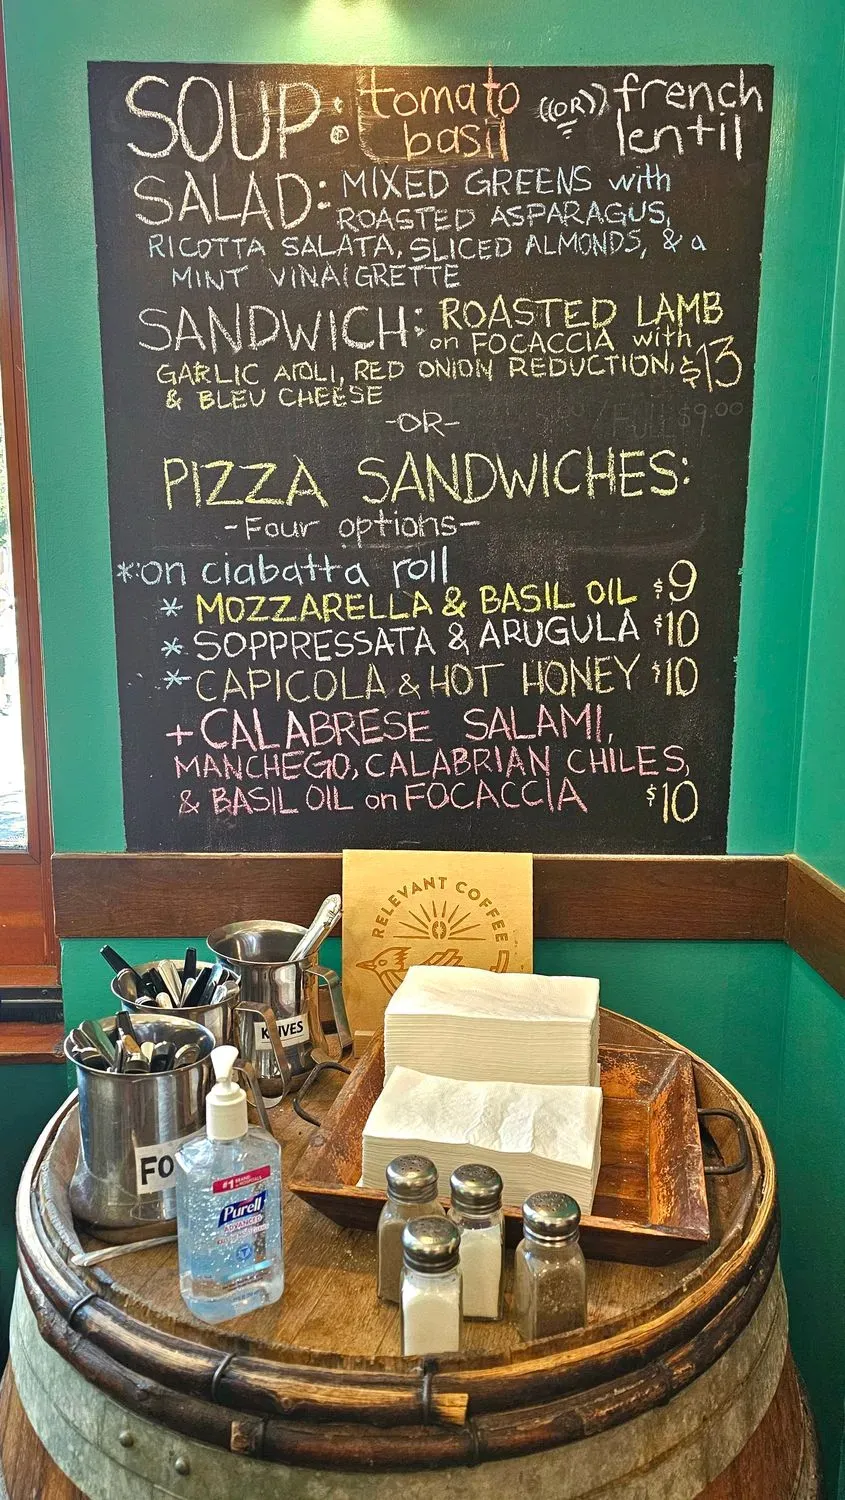 SOUP: tomato basil ((OR)) french lentil
SALAD: MIXED GREENS with
ROASTED ASPARAGUS,
RICOTTA SALATA, SLICED ALMONDS, & a
MINT VINAIGRETTE
SANDWICH: ROASTED LAMB
on FOCACCIA with
GARLIC AIOLI, RED ONION REDUCTION, $13
& BLEU CHEESE
FULL $9.00
-OR-
PIZZA SANDWICHES:
-Four options-
*:on ciabatta roll
* MOZZARELLA & BASIL OIL $9
* SOPPRESSATA & ARUGULA $10
* CAPICOLA & HOT HONEY $10
+ CALABRESE SALAMI,
MANCHEGO, CALABRIAN CHILES,
& BASIL OIL on FOCACCIA $10
RELEVANT COFFEE
KNIVES
FO
#1 BRAND
Purell
ADVANCED